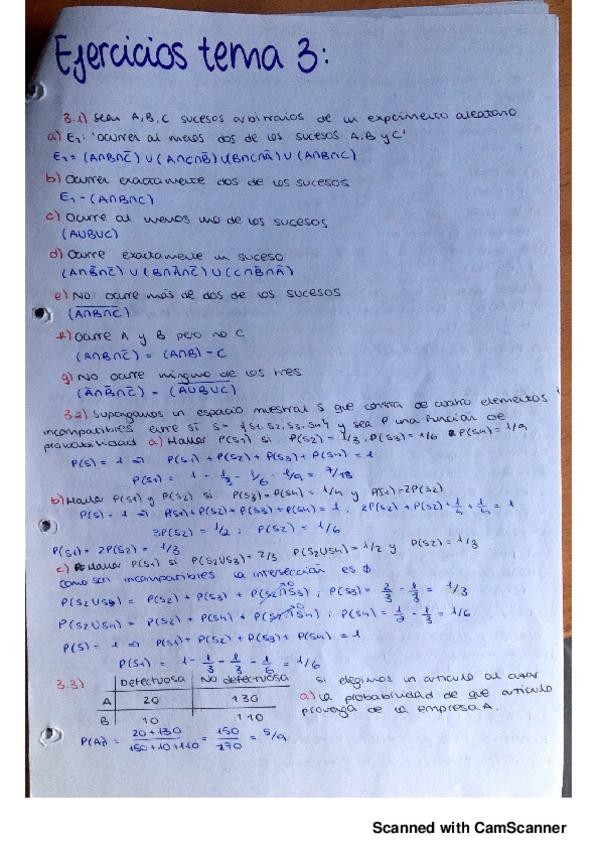 Ejercicios tema 3:
3.1) Sean A, B, C sucesos arbitrarios de un experimento aleatorio
a) E₁: 'ocurren al menos dos de los sucesos A, B y C'
E₁ = (A∩B∩C̄) ∪ (A∩C∩B̄) ∪ (B∩C∩Ā) ∪ (A∩B∩C)
b) Ocurren exactamente dos de los sucesos
E₁ - (A∩B∩C)
c) Ocurre al menos uno de los sucesos
(A∪B∪C)
d) Ocurre exactamente un suceso
(A∩B̄∩C̄) ∪ (B∩Ā∩C̄) ∪ (C∩B̄∩Ā)
e) No ocurre más de dos de los sucesos
(A∩B∩C)‾
f) Ocurre A y B pero no C
(A∩B∩C̄) = (A∩B) - C
g) No ocurre ninguno de los tres
(Ā∩B̄∩C̄) = (A∪B∪C)‾
3.2) Supongamos un espacio muestral S que consta de cuatro elementos
incompatibles entre sí S = {S1, S2, S3, S4} y sea P una función de
probabilidad a) Hallar P(S1) si P(S2) = 1/3, P(S3) = 1/6 P(S4) = 1/9
P(S) = 1 ⇒ P(S1) + P(S2) + P(S3) + P(S4) = 1
P(S1) = 1 - 1/3 - 1/6 - 1/9 = 7/18
b) Hallar P(S1) y P(S2) si P(S3) = P(S4) = 1/4 y P(S1) = 2P(S2)
P(S) = 1 ⇒ P(S1) + P(S2) + P(S3) + P(S4) = 1 ; 2P(S2) + P(S2) + 1/4 + 1/4 = 1
3P(S2) = 1/2 ; P(S2) = 1/6
P(S1) = 2P(S2) = 1/3
c) Hallar P(S1) si P(S2∪S3) = 2/3 P(S2∪S4) = 1/2 y P(S2) = 1/3
Como son incompatibles la intersección es ϕ
P(S2∪S3) = P(S2) + P(S3) + P(S2∩S3)→0 ; P(S3) = 2/3 - 1/3 = 1/3
P(S2∪S4) = P(S2) + P(S4) + P(S2∩S4)→0 ; P(S4) = 1/2 - 1/3 = 1/6
P(S) = 1 ⇒ P(S1) + P(S2) + P(S3) + P(S4) = 1
P(S1) = 1 - 1/3 - 1/3 - 1/6 = 1/6
3.3) Defectuosa No defectuosa Si elegimos un artículo al azar
A 20 130 a) La probabilidad de que artículo
B 10 110 provenga de la empresa A.
P(A) = 20+130 / 150+10+110 = 150/270 = 5/9
Scanned with CamScanner